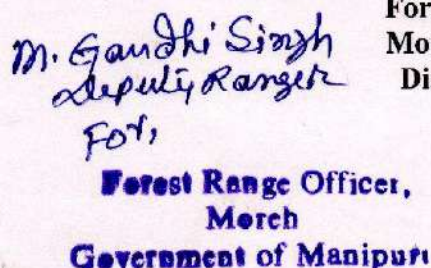 For
Mo
Di
M. Gandhi Singh
Deputy Ranger
For,
Forest Range Officer,
Moreh
Government of Manipur